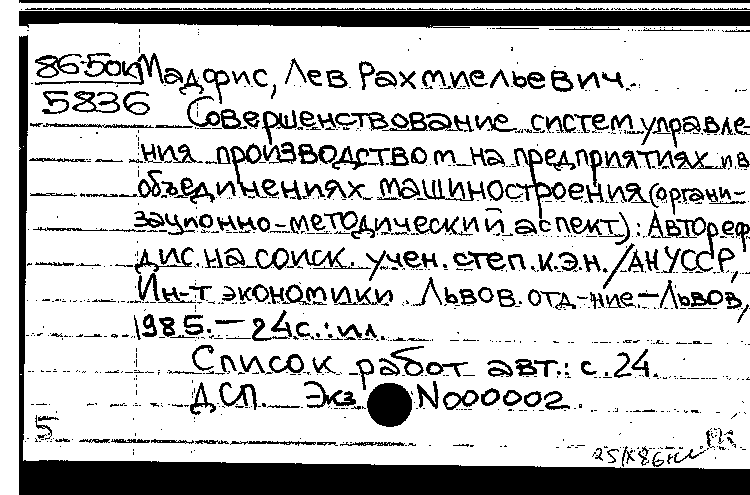 86-50к Мадфис, Лев Рахмиельевич.
5836
Совершенствование систем управле-
ния производством на предприятиях и в
объединениях машиностроения (органи-
зационно-методический аспект): Автореф
дис. на соиск. учен. степ. к.э.н. /АН УССР,
Ин-т экономики. Львов. отд-ние. - Львов,
1985. - 24с.: ил.
Список работ авт.: с. 24.
ДСП. Экз N000002.
5